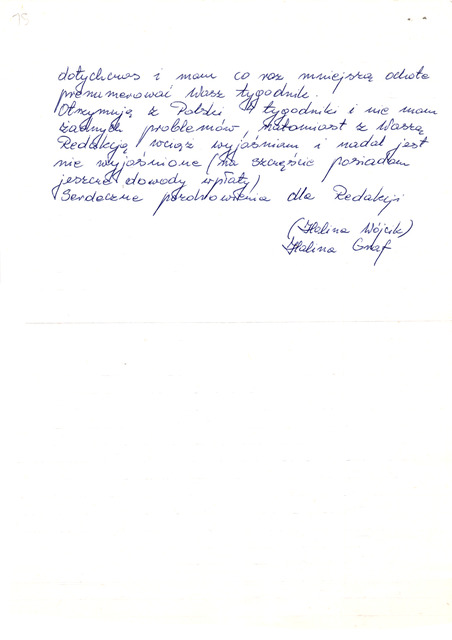 15
dotychczas i mam co raz mniejszą ochotę
prenumerować Wasz tygodnik.
Otrzymuję z Polski 4 tygodniki i nie mam
żadnych problemów, natomiast z Waszą
Redakcją wciąż wyjaśniam i nadal jest
nie wyjaśnione (na szczęście posiadam
jeszcze dowody wpłaty)
Serdeczne pozdrowienia dla Redakcji
(Halina Wójcik)
Halina Graf